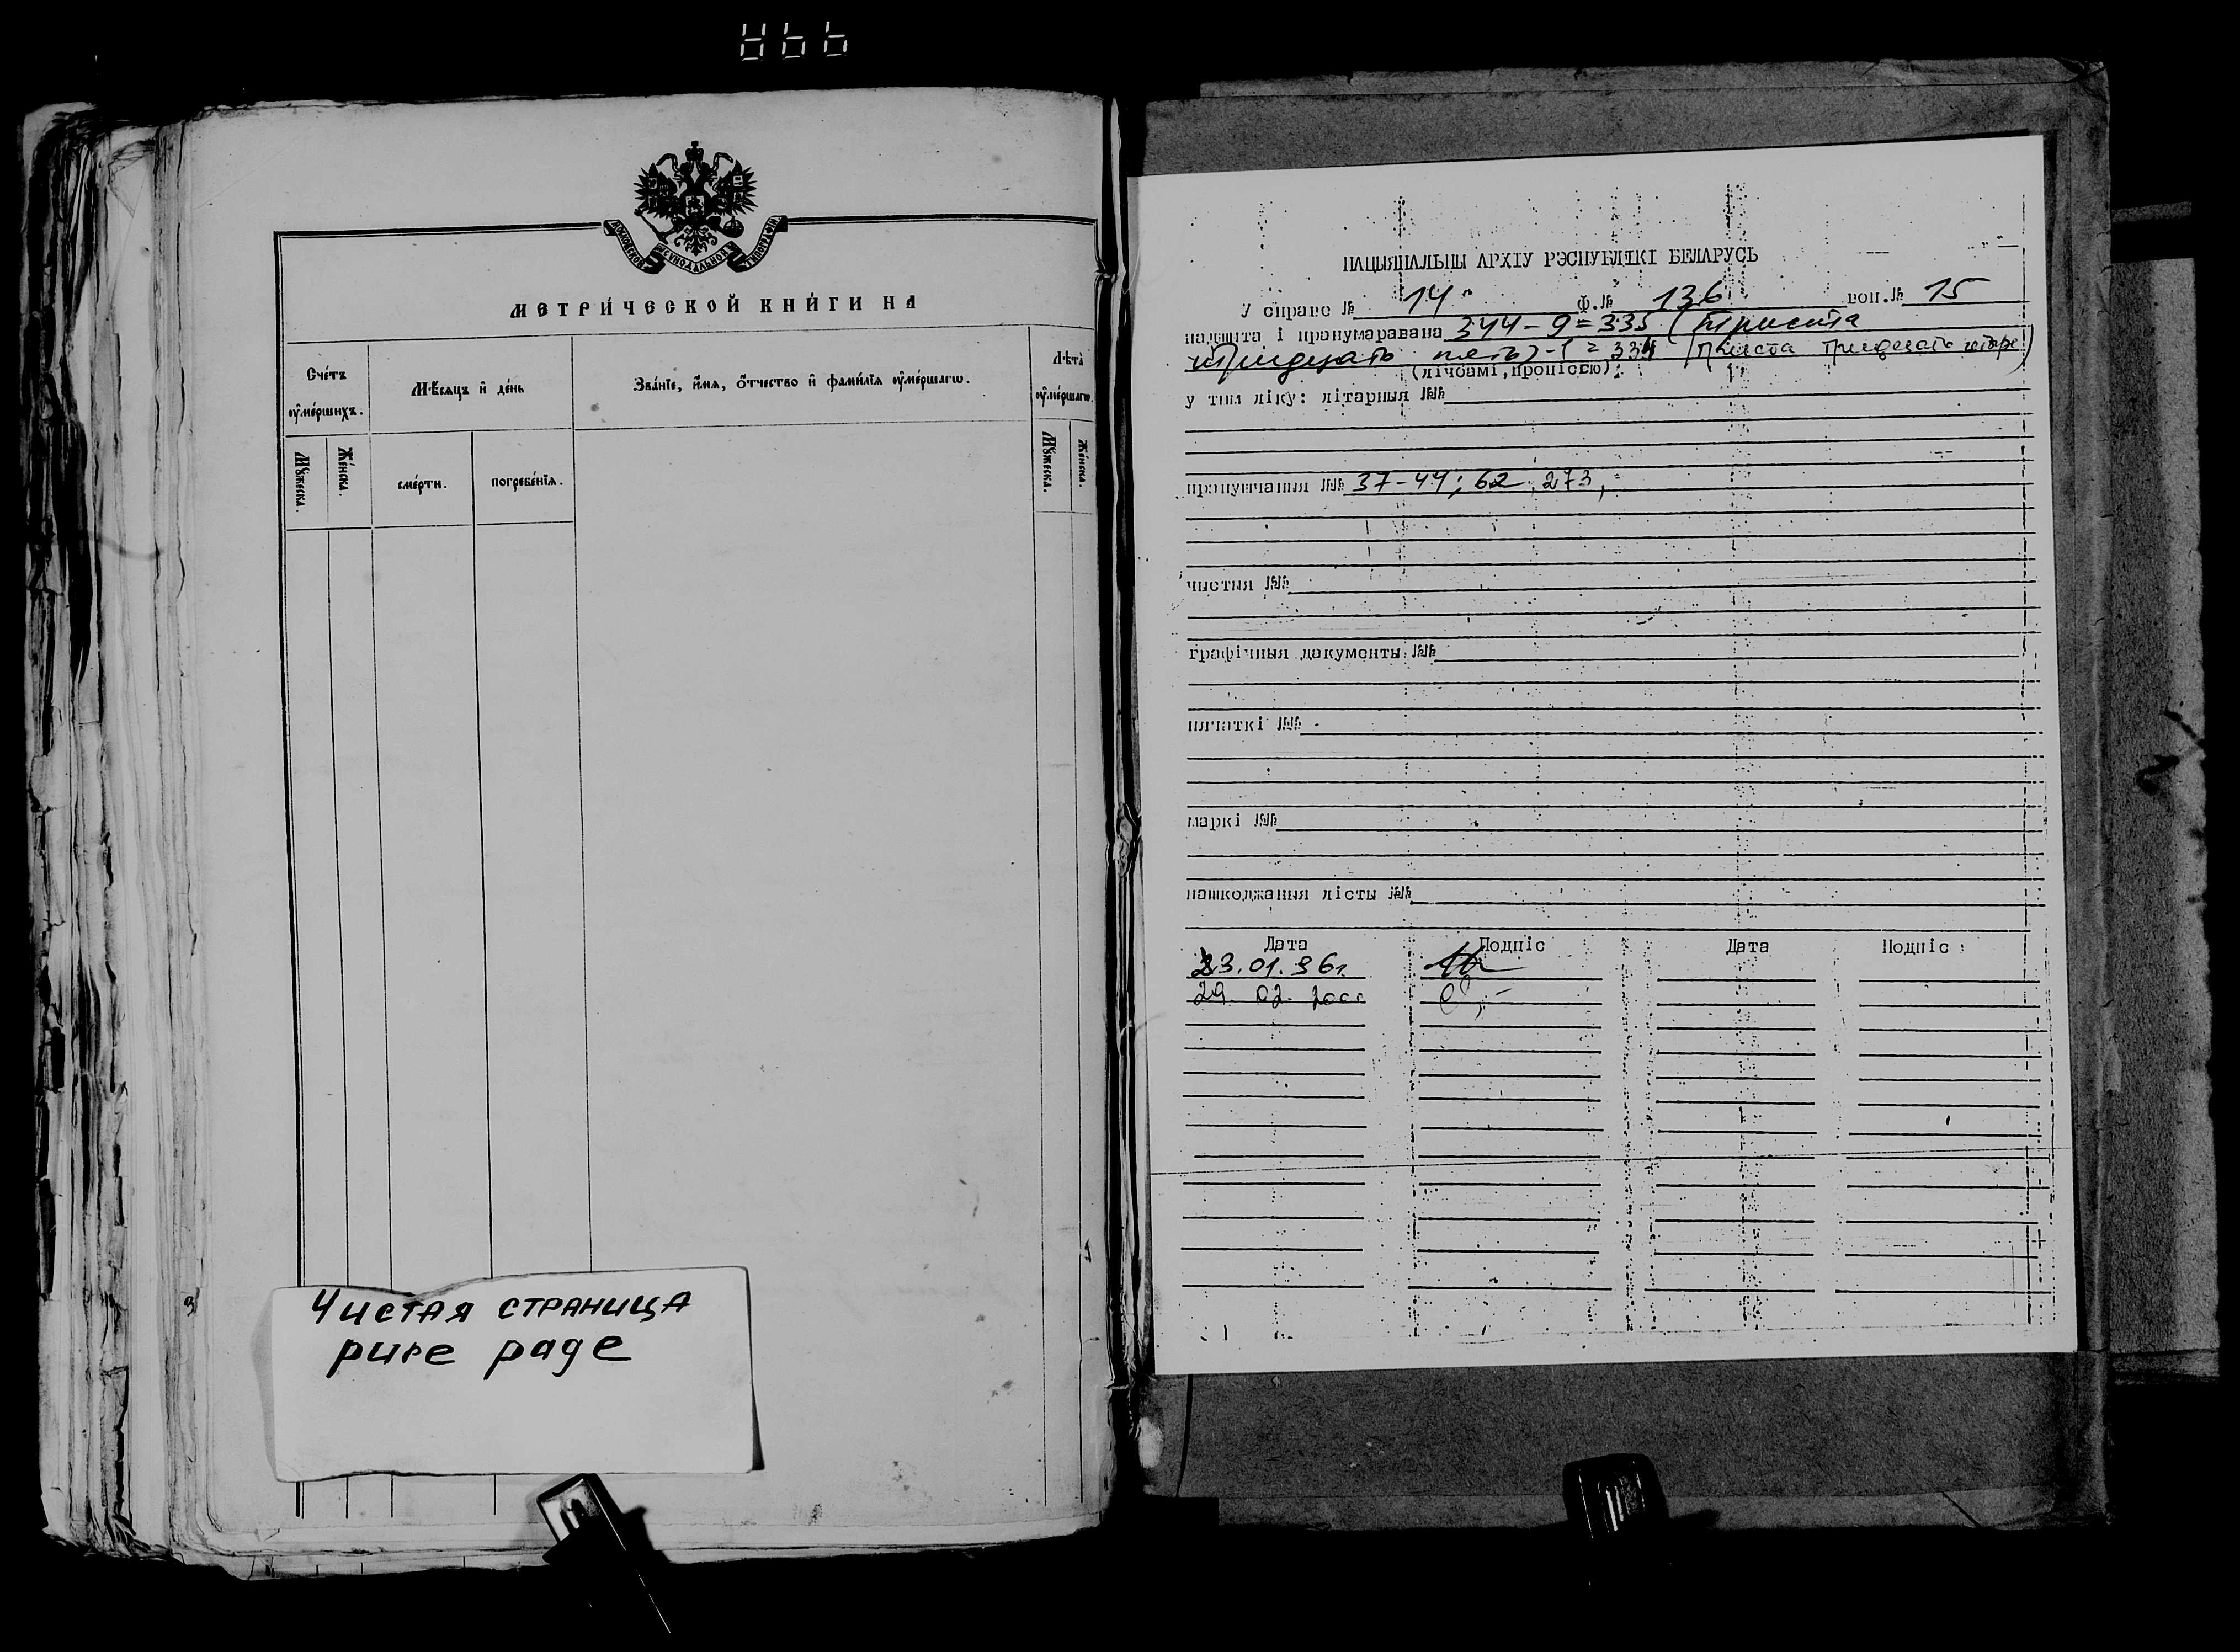 МОСКОВСКОЙ СѴНОДАЛЬНОЙ ТИПОГРАФІИ
МЕТРИ́ЧЕСКОЙ КНИ́ГИ НА
Сче́тъ ᲂу҆ме́ршихъ.
Мѣ́сяцъ и҆ де́нь
Зва́нїе, и҆́мя, ѻ҆́тчество и҆ фами́лїя ᲂу҆ме́ршагѡ.
Лѣ́та ᲂу҆ме́ршагѡ.
Мꙋ́жеска.
Же́нска.
сме́рти.
погребе́нїѧ.
Мꙋ́жеска.
Же́нска.
Чистая страница
pure page
НАЦЫЯНАЛЬНЫ АРХІУ РЭСПУБЛІКІ БЕЛАРУСЬ
У справе № 14 ф.№ 136 воп.№ 15
падшыта і пранумаравана 344-9=335 (триста
тридцать пять) -1 = 334 (триста тридцать четыре)
(лічбамі, пропіссю)
у тым ліку: літарныя №№
прапушчаныя №№ 37-44; 62, 273,
чыстыя №№
графічныя дакументы №№
пячаткі №№
маркі №№
пашкоджаныя лісты №№
Дата Подпіс Дата Подпіс
23.01.96г.
29. 02. 2000